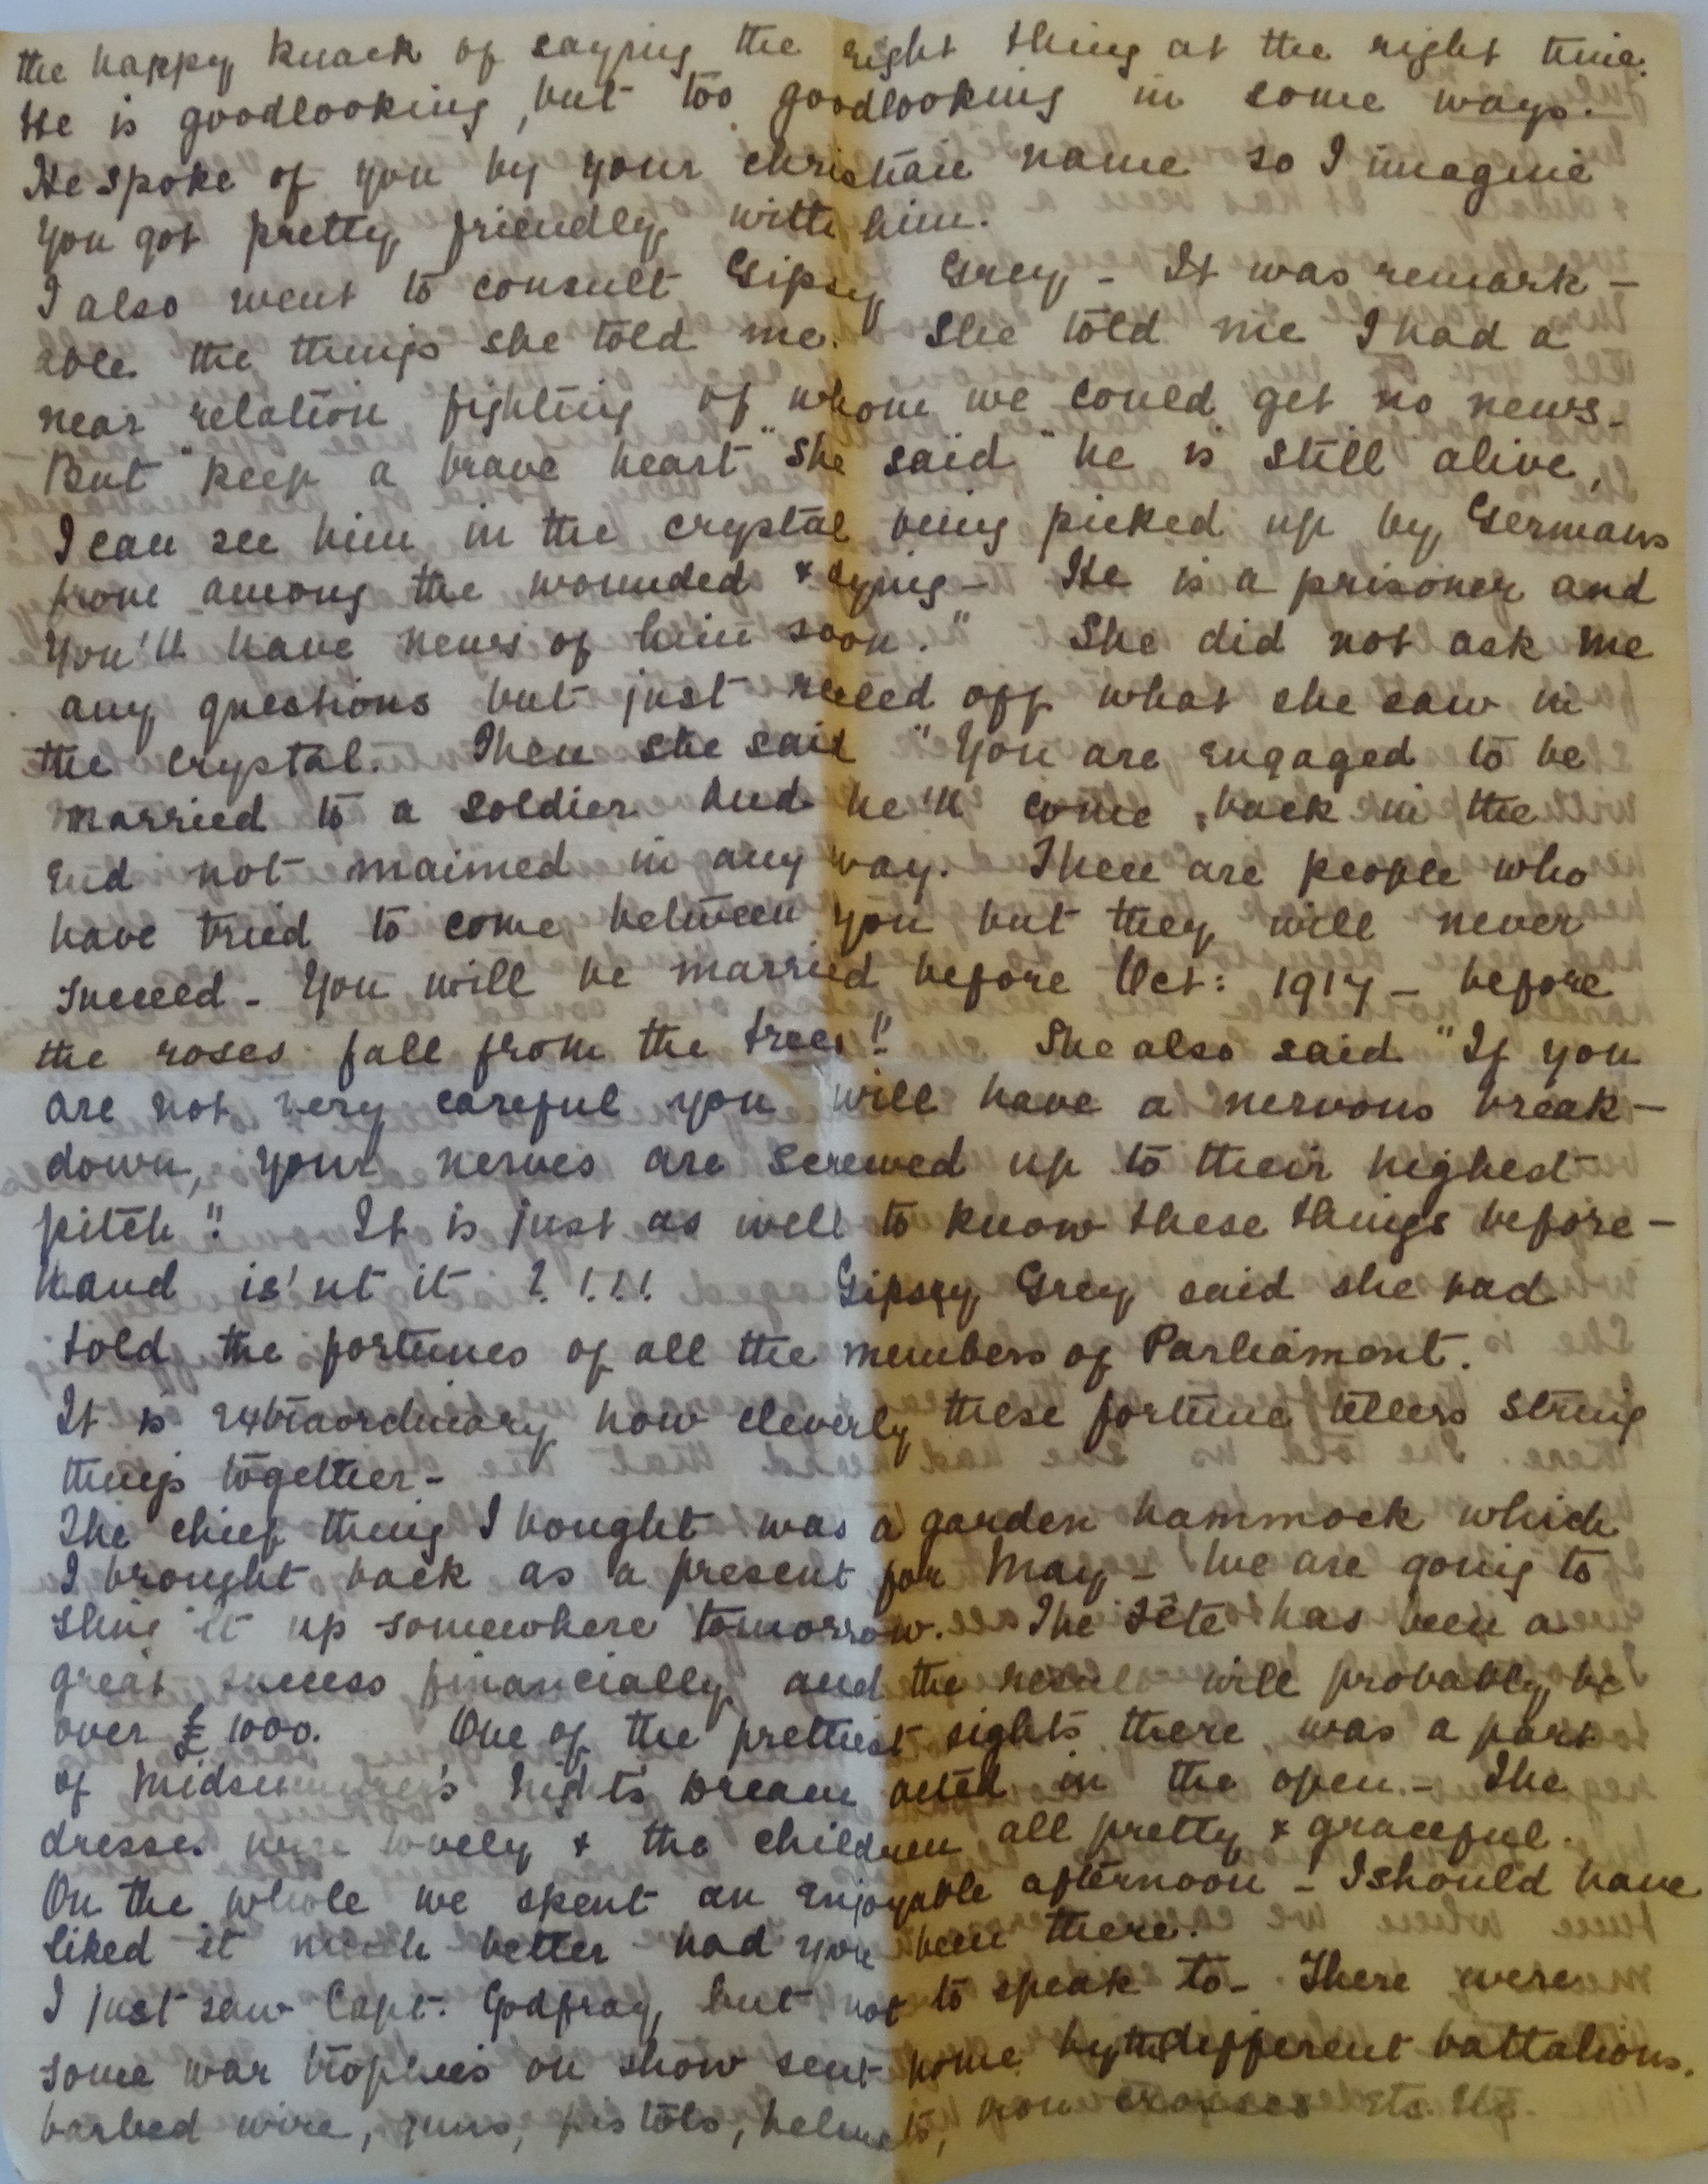 the happy knack of saying the right thing at the right time.
He is goodlooking, but too goodlooking in some ways.
He spoke of you by your christian name so I imagine
you got pretty friendly with him.
I also went to consult Gipsy Grey - It was remark-
able the things she told me. She told me I had a
near relation fighting of whom we could get no news.
But "keep a brave heart" she said "he is still alive,
I can see him in the crystal being picked up by Germans
from among the wounded & dying - He is a prisoner and
you'll have news of him soon." She did not ask me
any questions but just reeled off what she saw in
the crystal. Then she said "You are engaged to be
married to a soldier and he'll come back in the
end not maimed in any way. There are people who
have tried to come between you but they will never
succeed - You will be married before Oct: 1917 - before
the roses fall from the trees". She also said "If you
are not very careful you will have a nervous break-
down, your nerves are screwed up to their highest
pitch". It is just as well to know these things before-
hand is'nt it ?.!.!.!.
Gipsy Grey said she had
told the fortunes of all the members of Parliament.
It is extraordinary how cleverly these fortune tellers string
things together -
The chief thing I bought was a garden hammock which
I brought back as a present for May - We are going to
sling it up somewhere tomorrow. The Fête has been a
great success financially and the result will probably be
over £1000. One of the prettiest sights there was a part
of Midsummer's Night's Dream acted in the open. - The
dresses were lovely & the children all pretty & graceful.
On the whole we spent an enjoyable afternoon - I should have
liked it much better had you been there.
I just saw Capt. Godfray, but not to speak to - There were
some war trophies on show sent home by the different battalions.
barbed wire, guns, pistols, helmets, iron crosses etc. etc.